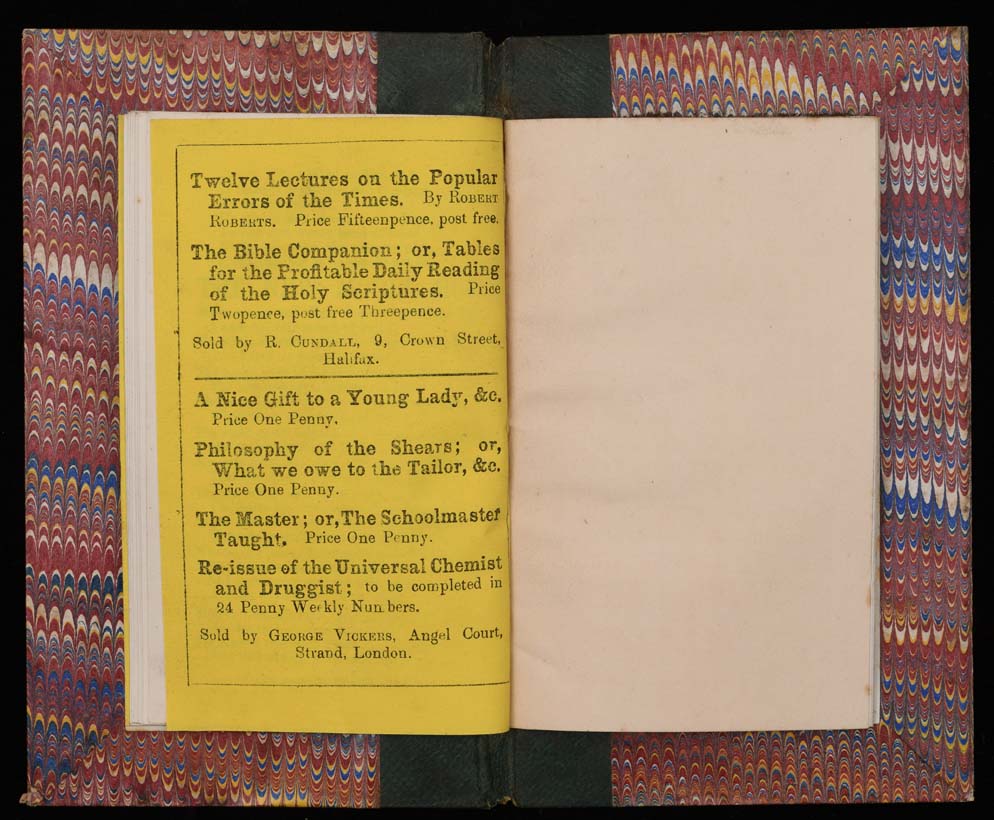 Twelve Lectures on the Popular
Errors of the Times. By ROBERT
ROBERTS. Price Fifteenpence, post free.
The Bible Companion; or, Tables
for the Profitable Daily Reading
of the Holy Scriptures. Price
Twopence, post free Threepence.
Sold by R. CUNDALL, 9, Crown Street,
Halifax.
A Nice Gift to a Young Lady, &c.
Price One Penny.
Philosophy of the Shears; or,
What we owe to the Tailor, &c.
Price One Penny.
The Master; or, The Schoolmaster
Taught. Price One Penny.
Re-issue of the Universal Chemist
and Druggist; to be completed in
24 Penny Weekly Numbers.
Sold by GEORGE VICKERS, Angel Court,
Strand, London.